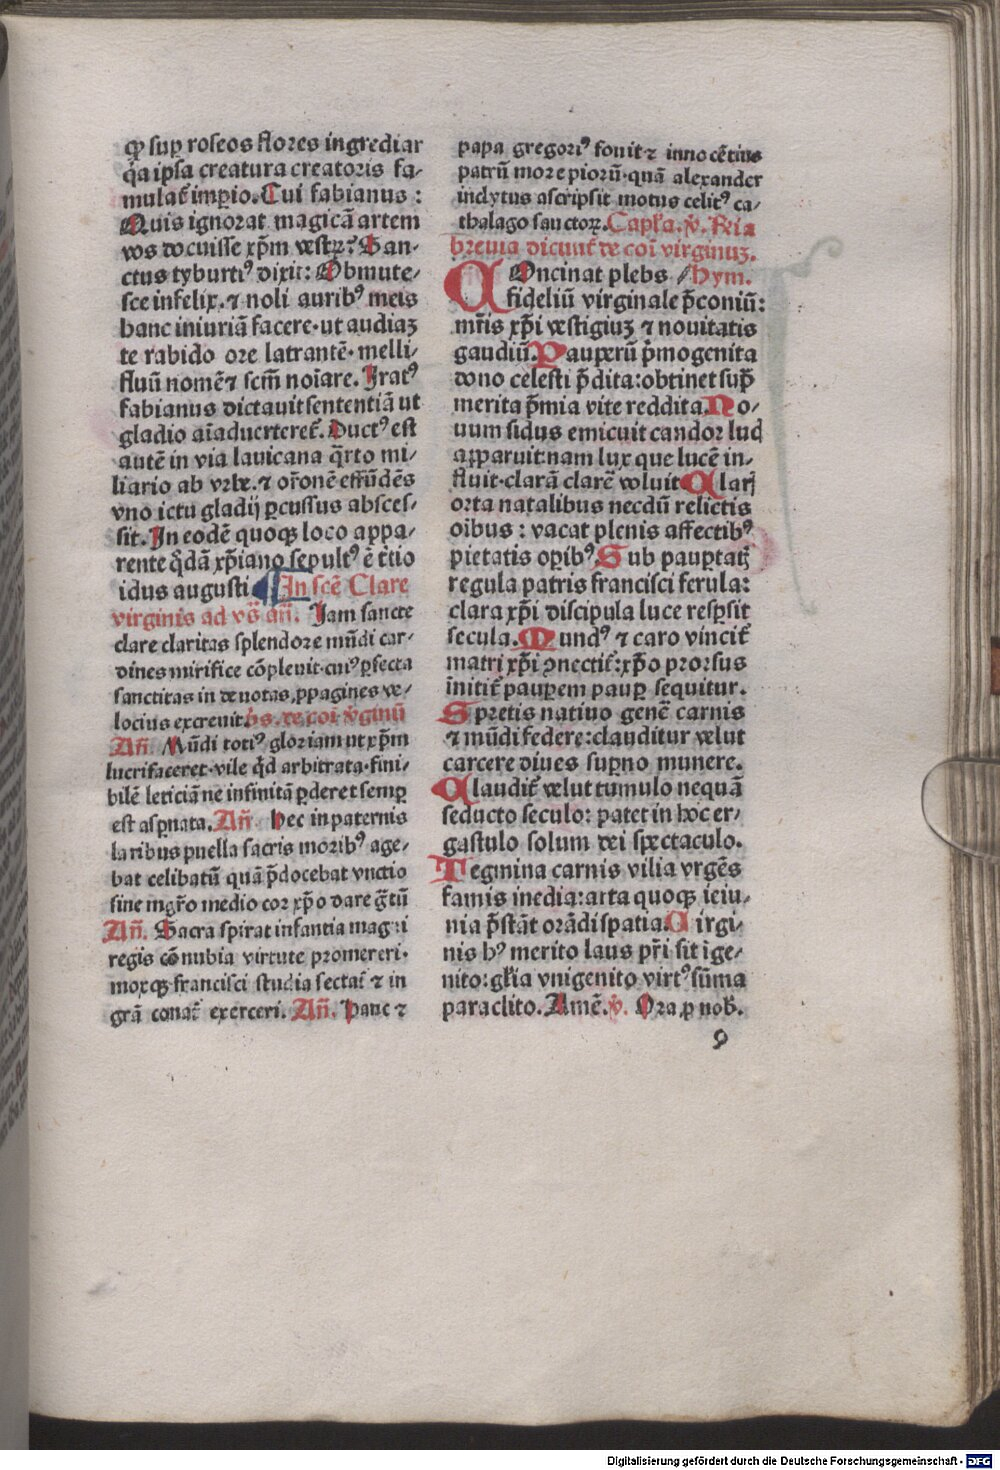 ꝙ suꝑ roseos flores ingrediar
q̃a ipsa creatura creatoris fa⸗
mulat᷑ imꝑio. Cui fabianus :
Quis ignorat magicã artem
vos docuisse xp̃m vestꝝ? San⸗
ctus tyburtiꝰ dixit: Obmute⸗
sce infelix. ⁊ noli auribꝰ meis
hanc iniuriã facere· ut audiaꝫ
te rabido ore latrantẽ· melli⸗
fluũ nomẽ ⁊ scm̃ noĩare. Iratꝰ
fabianus dictauit sententiã ut
gladio aĩaduerteret᷑. Ductꝰ est
autẽ in via lauicana q̃rto mi⸗
liario ab vrbe. ⁊ or̃onẽ effũdẽs
vno ictu gladij ꝑcussus absces⸗
sit. In eodẽ quoqꝫ loco appa⸗
rente q̃dã xp̃iano sepultꝰ ẽ t̃tio
idus augusti In scẽ Clare
virginis ad vs̃ añ. Iam sancte
clare claritas splendore mũdi car⸗
dines mirifice cõpleuit· cuiꝰ ꝑfecta
sanctitas in deuotas ꝓpagines ve⸗
locius excreuit. p̄s. de coĩ v̓ginũ
Añ. Mũdi totiꝰ gloriam ut xp̃m
lucrifaceret· vile q̃d arbitrata· fini⸗
bilẽ leticiã ne infinitã ꝑderet semꝑ
est asꝑnata. Añ Hec in paternis
laribus puella sacris moribꝰ age⸗
bat celibatũ quã p̃docebat vnctio
sine mgr̃o medio cor xp̃o dare g̃tũ
Añ. Sacra spirat infantia magni
regis cõnubia virtute promereri·
moxqꝫ francisci studia sectat᷑ ⁊ in
grã conat᷑ exerceri. Añ. Hanc ⁊
papa gregoriꝰ fouit ⁊ innocẽtius
patrũ more piorũ· quã alexander
inclytus ascripsit motus celitꝰ ca⸗
thalago sanctoꝝ. Capl̃a. v̓. R̃ia
breuia dicunt᷑ de coĩ virginuꝫ.
COncinat plebs Hym.
fideliũ virginale p̃coniũ:
mr̃is xp̃i vestigiuꝫ ⁊ nouitatis
gaudiũ. Pauperũ p̃mogenita
dono celesti p̃dita: obtinet sup̃
merita p̃mia vite reddita. No⸗
uum sidus emicuit candor lucꝭ
apparuit: nam lux que lucẽ in⸗
fluit· clarã clarẽ voluit Clarꝭ
orta natalibus necdũ relictis
oĩbus : vacat plenis affectibꝰ
pietatis oꝑibꝰ. Sub pauꝑtatꝭ
regula patris francisci ferula:
clara xp̃i discipula luce resꝑsit
secula. Mundꝰ ⁊ caro vincit᷑
matri xp̃i ꝯnectit᷑: xp̃o prorsus
ĩnitit᷑ pauꝑem pauꝑ sequitur.
Spretis natiuo genẽ carnis
⁊ mũdi federe: clauditur velut
carcere diues suꝑno munere.
Claudit᷑ velut tumulo nequã
seducto seculo: patet in hoc er⸗
gastulo solum dei spectaculo.
Tegmina carnis vilia vrgẽs
famis inedia: arta quoqꝫ ieiu⸗
nia p̃stãt orãdi spatia. Uirgi⸗
nis hꝰ merito laus pr̃i sit ige⸗
nito: gl̃ia vnigenito virtꝰ sũma
paraclito. Amẽ. v̓. Ora ꝓ nob̃.
Digitalisierung gefördert durch die Deutsche Forschungsgemeinschaft - DFG